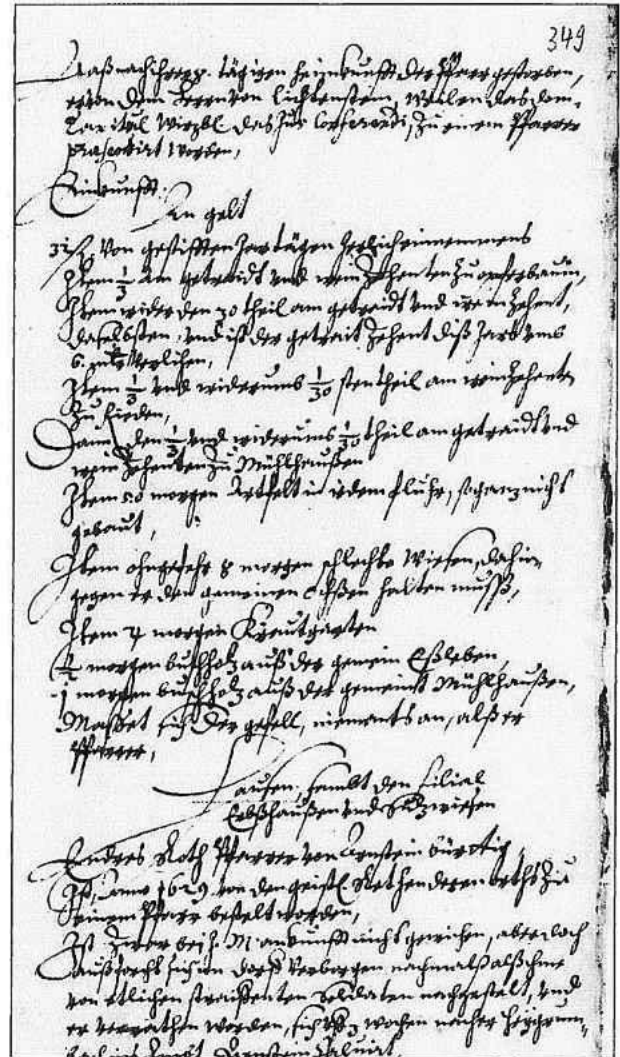 349
Daß nach ihrer 8. tägigen heimkunfft der Pfarr gestorben,
er von dem Herrn von Lichtenstein, weilen das dom
Capitul Wirzb. das Jus Conferendi, zu einem Pfarrer
præsentirt worden,
Einkunfft.
An gelt
von gestifften Jartägen Jerlich einnemmens
Item 1/3 am getreidt und wein Zehenten zu opferbaum,
Item wider den 30 theil am getreidt und wein Zehent,
daselbsten, und ist der getreit Zehent diß Jars umb
6. verlichen,
Item 1/3 und widerumb 1/30 sten theil am wein Zehenten
Zu
Dann den 1/3 und widerumb 1/30 theil am getreidt und
wein Zehenten Zu Mühlhaußen
Item 50 morgen Artfelt in idem fluhr, so ganz nicht
gebaut,
Item ohngefehr 8 morgen schlechte Wiesen, dahin
gegen er den gemeinen Ochßen halten muss,
Item morgen Kreutgarten
morgen buschholz auß der gemein Eßleben,
1 morgen buschholz auß der gemeint Mühlhaußen,
Masset sich der gefell, niemants an, alß er
Pfarrer,
Hausen, sambt den filial
Erbßhaußen und Sulzwiesen
Endres Roth Pfarrer von Arnstein bürtig,
Ist, anno 1629 von den geistl. Rethen deren orths zu
einem Pfarr bestelt worden,
Ist Zwar bei J. M. ankunfft nicht gewichen, aber doch
auß forcht sich im dorff verborgen nachmalß alß ihme
von etlichen straiffenten Soldaten nachgestelt, und
er verrathen worden, sich uff 3 wochen nacher
Arnstein salvirt